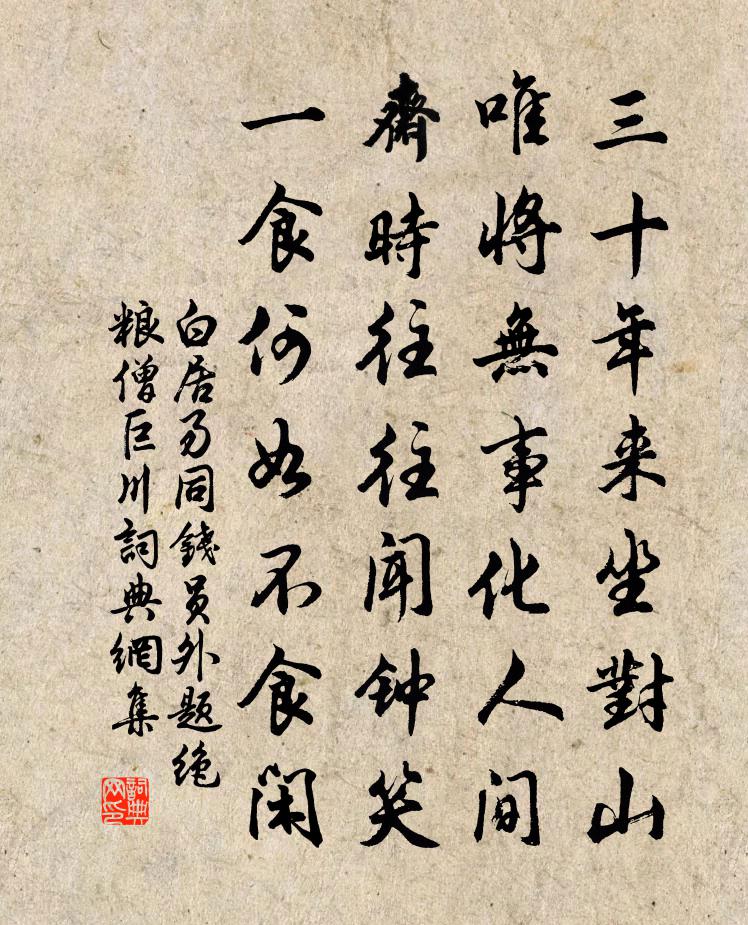 三十年来坐對山
唯將無事化人间
齋時往往闻钟笑
一食何如不食闲
白居易同錢员外题绝
粮僧巨川詞典網集
詞典
网印